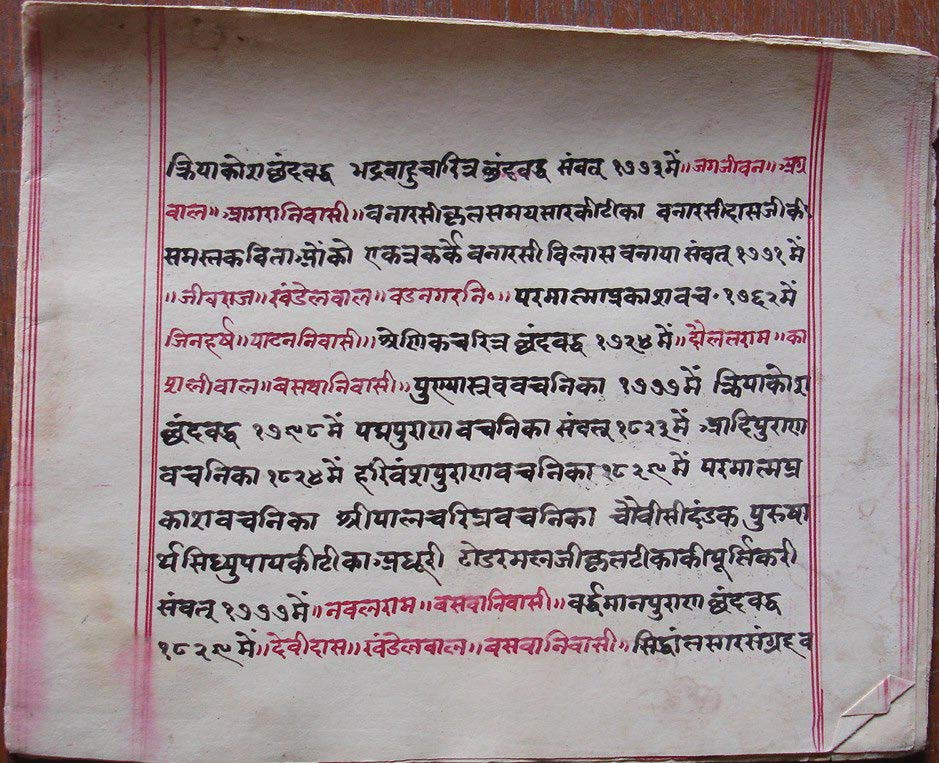 क्रियाकोश छंदबद्ध भद्रबाहुचारित्र छंदबद्ध संवत् १७७३में॥जगजीवन॥अग्र
वाल॥आगरानिवासी॥वनारसीकृतसमयसारकीटीका वनारसीदासजीकी
समस्तकविताओंको एकत्रकर्के वनारसीविलास वनाया संवत् १७७१में
॥जीवराज॥खंडेलवाल॥वडनगरनि॰॥परमात्माप्रकाशवच॰१७६२में
जिनहर्ष॥पाटननिवासी॥श्रेणिकचरित्र छंदबद्ध १७२४में॥दौलतराम॥का
शलीवाल॥बसवानिवासी॥पुण्यास्रववचनिका १७७७में क्रियाकोश
छंदबद्ध १७९८में पद्मपुराण वचनिका संवत् १८२३में आदिपुराण
वचनिका १८२४में हरिवंशपुराणवचनिका १८२९में परमात्मप्र
काशवचनिका श्रीपालचरित्रवचनिका चौवीसीदंडक पुरुषा
र्थसिध्युपायकीटीका अधूरी टोडरमलजीकृतटीकाकीपूर्त्तिकरी
संवत् १७७७में॥नवलराम॥बसवानिवासी॥वर्द्धमानपुराण छंदबद्ध
१८२९में॥देवीदास॥खंडेलवाल॥बसवानिवासी॥सिद्धांतसारसंग्रहव